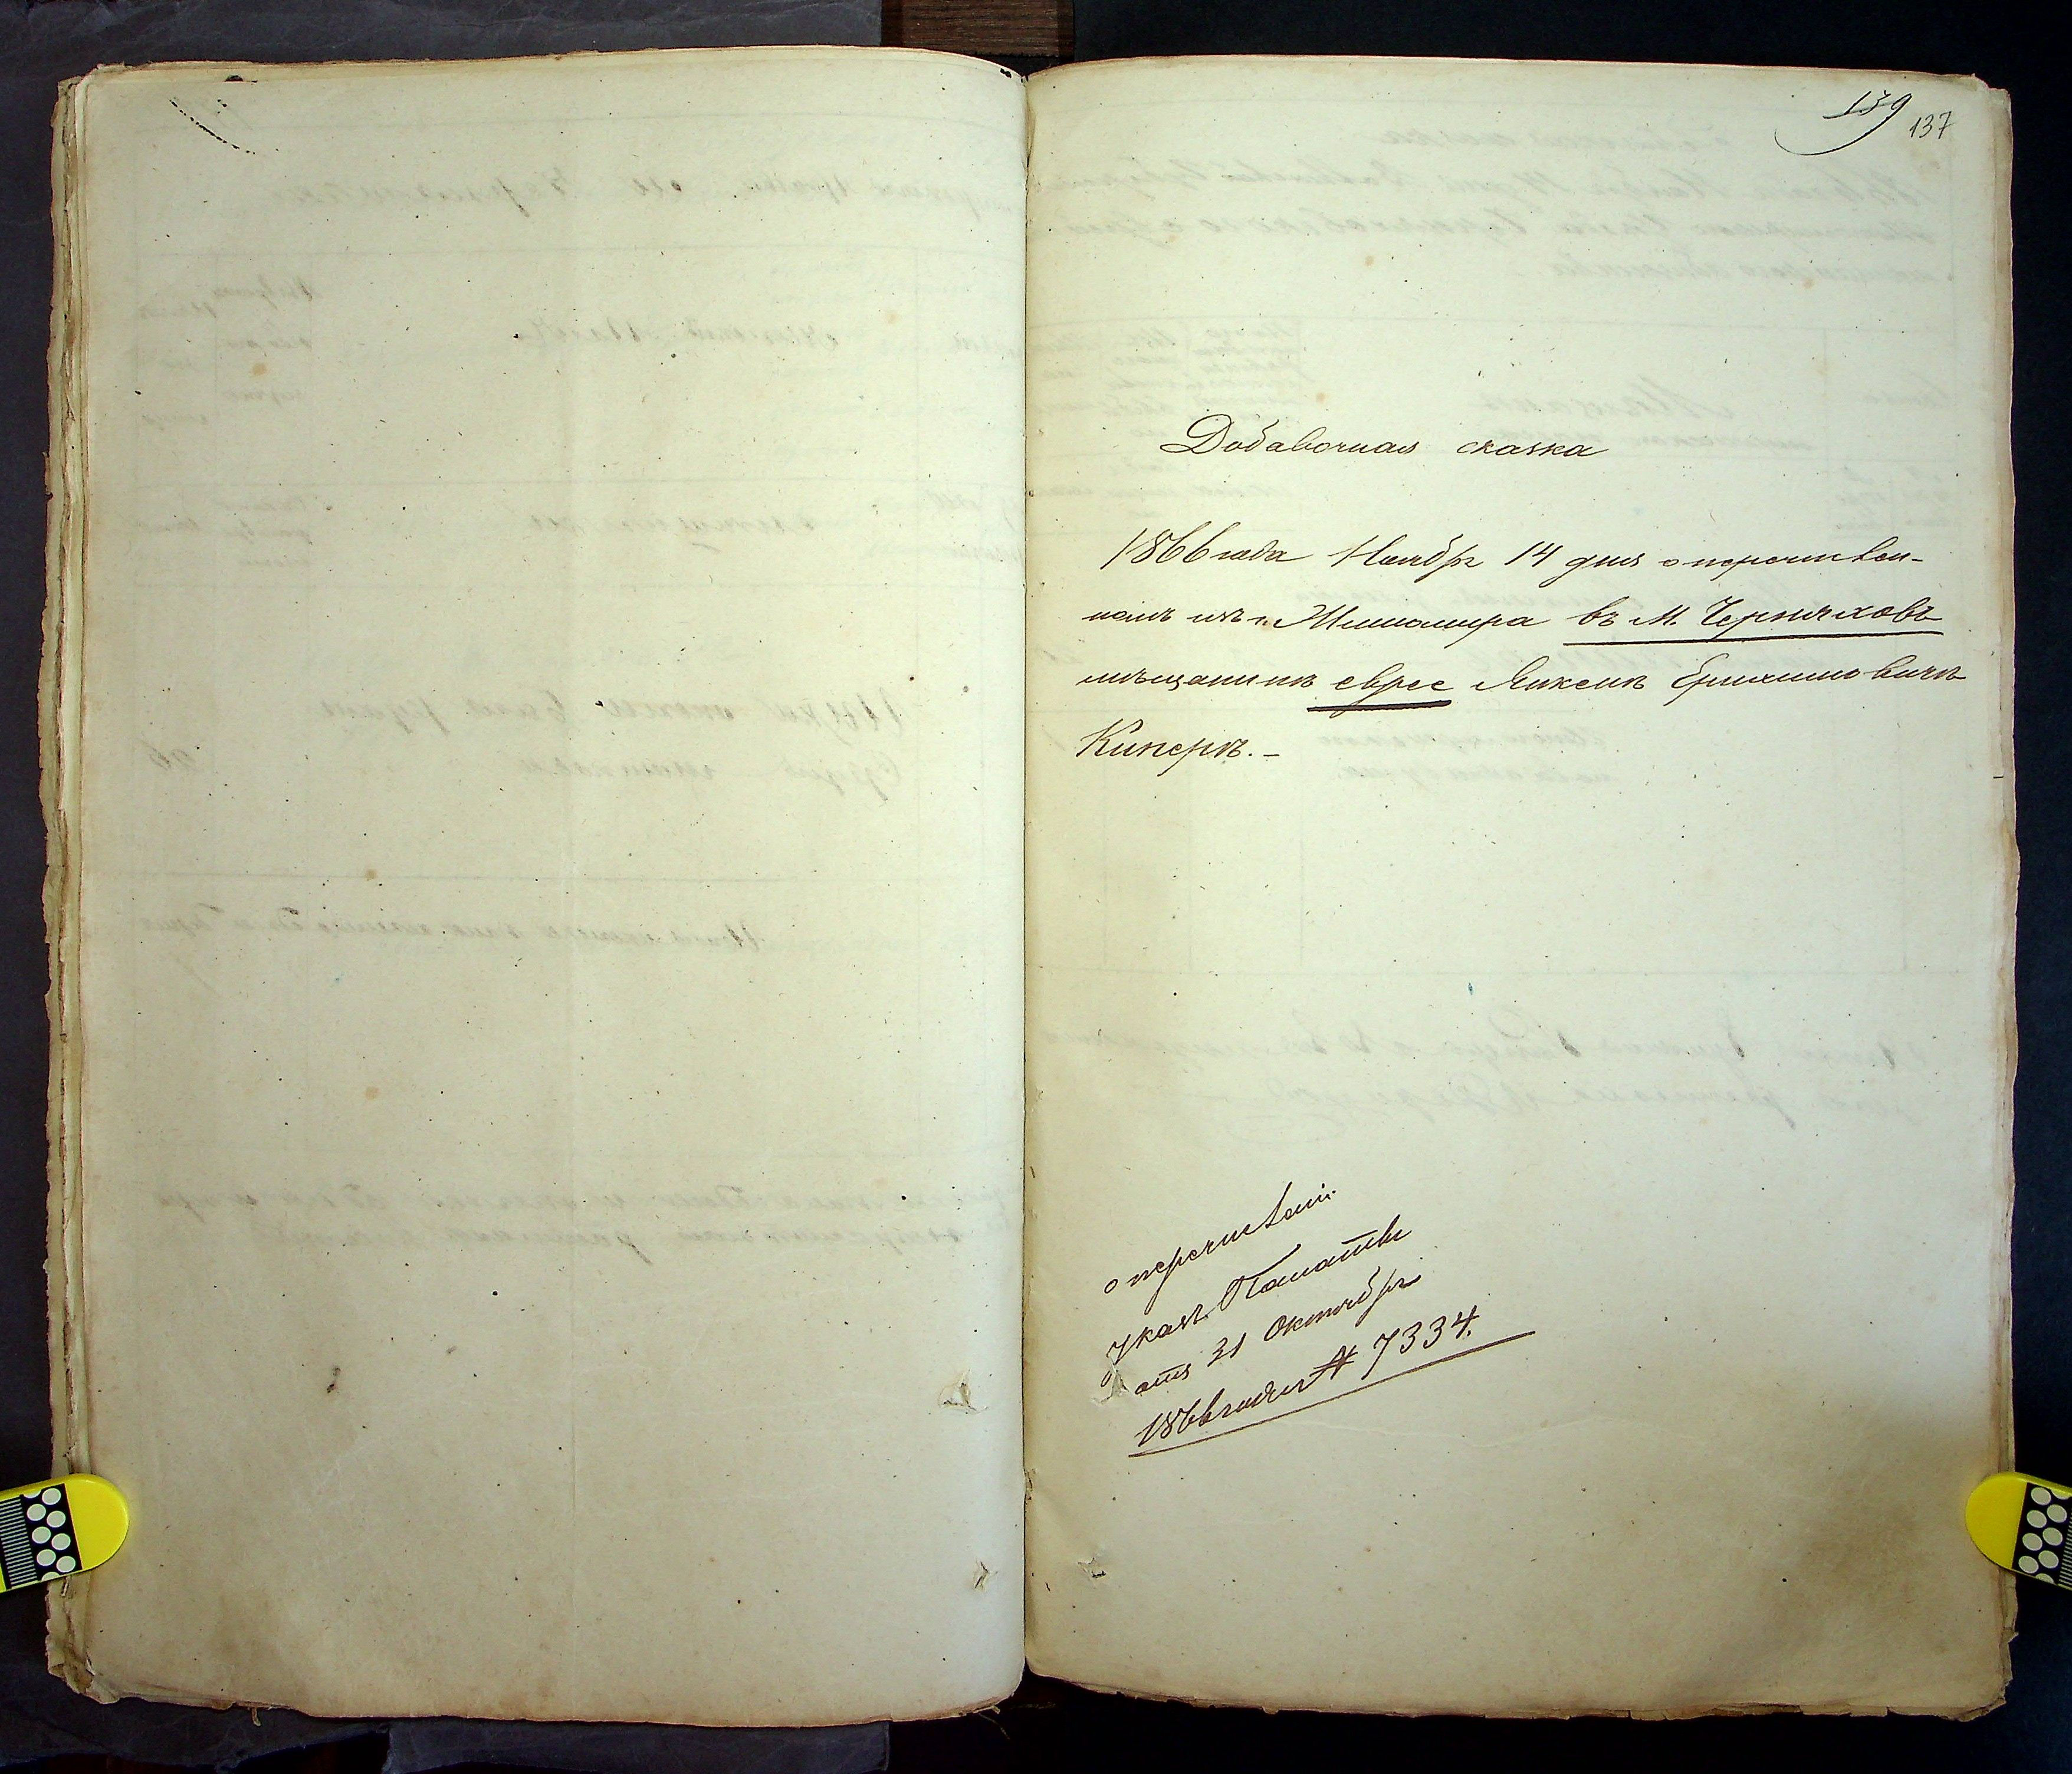 139
137
Добавочная сказка
1866 года Ноября 14 дня о перечислен-
номъ изъ г. Житомира въ М. Черняховъ
мѣщанинѣ еврее Янкель Ерихимовичъ
Киперъ. –
о перечислени:
указъ Палаты
отъ 31 Октября
1866 года № 7334.